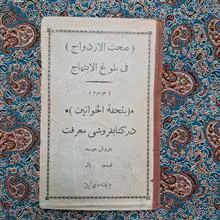 ( صحت الازدواج )
فی بلوغ الابتهاج
( موسوم )
*( بتحفة الخواتین )*
در کتابفروشی معرفت
بفروش میرسد
قیمت ریال